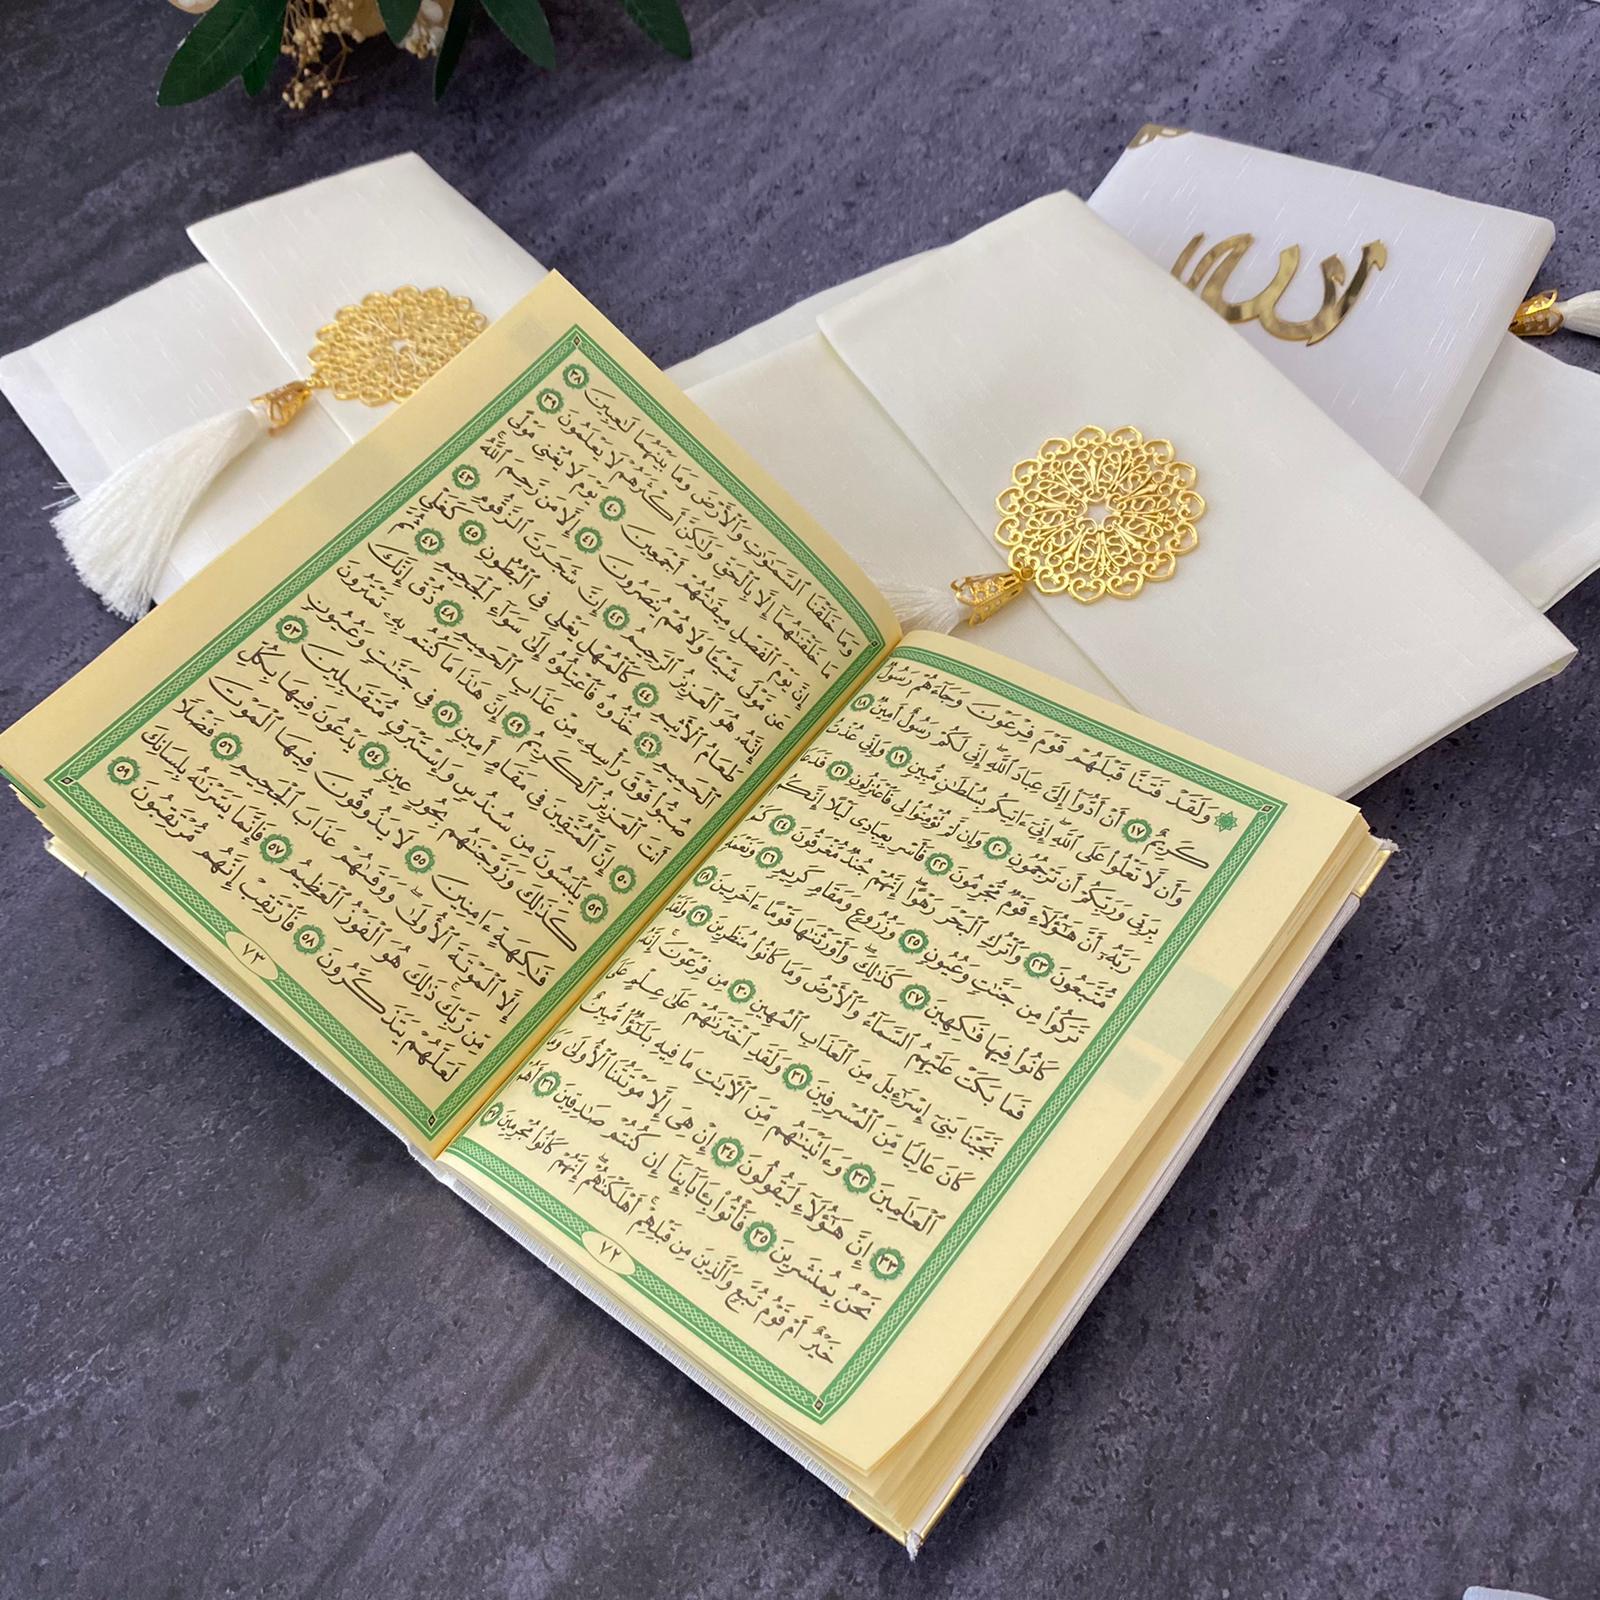 الله
۞ وَلَقَدْ فَتَنَّا قَبْلَهُمْ قَوْمَ فِرْعَوْنَ وَجَآءَهُمْ رَسُولٌ
كَرِيمٌ ١٧ أَنْ أَدُّوٓا۟ إِلَىَّ عِبَادَ ٱللَّهِ ۖ إِنِّى لَكُمْ رَسُولٌ أَمِينٌ ١٨
وَأَن لَّا تَعْلُوا۟ عَلَى ٱللَّهِ ۖ إِنِّىٓ ءَاتِيكُم بِسُلْطَٰنٍ مُّبِينٍ ١٩ وَإِنِّى عُذْتُ
بِرَبِّى وَرَبِّكُمْ أَن تَرْجُمُونِ ٢٠ وَإِن لَّمْ تُؤْمِنُوا۟ لِى فَٱعْتَزِلُونِ ٢١ فَدَعَا
رَبَّهُۥٓ أَنَّ هَٰٓؤُلَآءِ قَوْمٌ مُّجْرِمُونَ ٢٢ فَأَسْرِ بِعِبَادِى لَيْلًا إِنَّكُم
مُّتَّبَعُونَ ٢٣ وَٱتْرُكِ ٱلْبَحْرَ رَهْوًا ۖ إِنَّهُمْ جُندٌ مُّغْرَقُونَ ٢٤ كَمْ
تَرَكُوا۟ مِن جَنَّٰتٍ وَعُيُونٍ ٢٥ وَزُرُوعٍ وَمَقَامٍ كَرِيمٍ ٢٦ وَنَعْمَةٍ
كَانُوا۟ فِيهَا فَٰكِهِينَ ٢٧ كَذَٰلِكَ ۖ وَأَوْرَثْنَٰهَا قَوْمًا ءَاخَرِينَ ٢٨
فَمَا بَكَتْ عَلَيْهِمُ ٱلسَّمَآءُ وَٱلْأَرْضُ وَمَا كَانُوا۟ مُنظَرِينَ ٢٩ وَلَقَدْ
نَجَّيْنَا بَنِىٓ إِسْرَٰٓءِيلَ مِنَ ٱلْعَذَابِ ٱلْمُهِينِ ٣٠ مِن فِرْعَوْنَ ۚ إِنَّهُۥ
كَانَ عَالِيًا مِّنَ ٱلْمُسْرِفِينَ ٣١ وَلَقَدِ ٱخْتَرْنَٰهُمْ عَلَىٰ عِلْمٍ عَلَى
ٱلْعَٰلَمِينَ ٣٢ وَءَاتَيْنَٰهُم مِّنَ ٱلْءَايَٰتِ مَا فِيهِ بَلَٰٓؤٌا۟ مُّبِينٌ
٣٣ إِنَّ هَٰٓؤُلَآءِ لَيَقُولُونَ ٣٤ إِنْ هِىَ إِلَّا مَوْتَتُنَا ٱلْأُولَىٰ وَمَا
نَحْنُ بِمُنشَرِينَ ٣٥ فَأْتُوا۟ بِـَٔابَآئِنَآ إِن كُنتُمْ صَٰدِقِينَ ٣٦ أَهُمْ
خَيْرٌ أَمْ قَوْمُ تُبَّعٍ وَٱلَّذِينَ مِن قَبْلِهِمْ ۚ أَهْلَكْنَٰهُمْ ۖ إِنَّهُمْ كَانُوا۟ مُجْرِمِينَ ٣٧
٧٢
وَمَا خَلَقْنَا ٱلسَّمَٰوَٰتِ وَٱلْأَرْضَ وَمَا بَيْنَهُمَا لَٰعِبِينَ ٣٨
مَا خَلَقْنَٰهُمَآ إِلَّا بِٱلْحَقِّ وَلَٰكِنَّ أَكْثَرَهُمْ لَا يَعْلَمُونَ ٣٩
إِنَّ يَوْمَ ٱلْفَصْلِ مِيقَٰتُهُمْ أَجْمَعِينَ ٤٠ يَوْمَ لَا يُغْنِى مَوْلًى
عَن مَّوْلًى شَيْـًٔا وَلَا هُمْ يُنصَرُونَ ٤١ إِلَّا مَن رَّحِمَ ٱللَّهُ ۚ
إِنَّهُۥ هُوَ ٱلْعَزِيزُ ٱلرَّحِيمُ ٤٢ إِنَّ شَجَرَتَ ٱلزَّقُّومِ ٤٣
طَعَامُ ٱلْأَثِيمِ ٤٤ كَٱلْمُهْلِ يَغْلِى فِى ٱلْبُطُونِ ٤٥ كَغَلْىِ
ٱلْحَمِيمِ ٤٦ خُذُوهُ فَٱعْتِلُوهُ إِلَىٰ سَوَآءِ ٱلْجَحِيمِ ٤٧ ثُمَّ
صُبُّوا۟ فَوْقَ رَأْسِهِۦ مِنْ عَذَابِ ٱلْحَمِيمِ ٤٨ ذُقْ إِنَّكَ
أَنتَ ٱلْعَزِيزُ ٱلْكَرِيمُ ٤٩ إِنَّ هَٰذَا مَا كُنتُم بِهِۦ تَمْتَرُونَ
٥٠ إِنَّ ٱلْمُتَّقِينَ فِى مَقَامٍ أَمِينٍ ٥١ فِى جَنَّٰتٍ وَعُيُونٍ
٥٢ يَلْبَسُونَ مِن سُندُسٍ وَإِسْتَبْرَقٍ مُّتَقَٰبِلِينَ ٥٣
كَذَٰلِكَ وَزَوَّجْنَٰهُم بِحُورٍ عِينٍ ٥٤ يَدْعُونَ فِيهَا بِكُلِّ
فَٰكِهَةٍ ءَامِنِينَ ٥٥ لَا يَذُوقُونَ فِيهَا ٱلْمَوْتَ
إِلَّا ٱلْمَوْتَةَ ٱلْأُولَىٰ ۖ وَوَقَىٰهُمْ عَذَابَ ٱلْجَحِيمِ ٥٦ فَضْلًا
مِّن رَّبِّكَ ۚ ذَٰلِكَ هُوَ ٱلْفَوْزُ ٱلْعَظِيمُ ٥٧ فَإِنَّمَا يَسَّرْنَٰهُ بِلِسَانِكَ
لَعَلَّهُمْ يَتَذَكَّرُونَ ٥٨ فَٱرْتَقِبْ إِنَّهُم مُّرْتَقِبُونَ ٥٩
٧٣